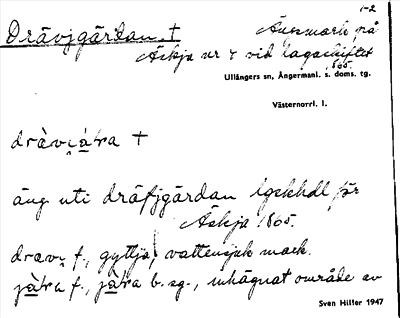 1-2
Drävjgärdan. † Ängsmark på
Äskja nr 4 vid lagaskiftet
1805.
Ullångers sn, Ångermanl. s. doms. tg.
Västernorrl. l.
äng uti dräfjgärdan lgskhdl för
Äskja 1805.
drav f., gyttja, vattensjuk mark.
f., b. sg., inhägnat område av
Sven Hiller 1947